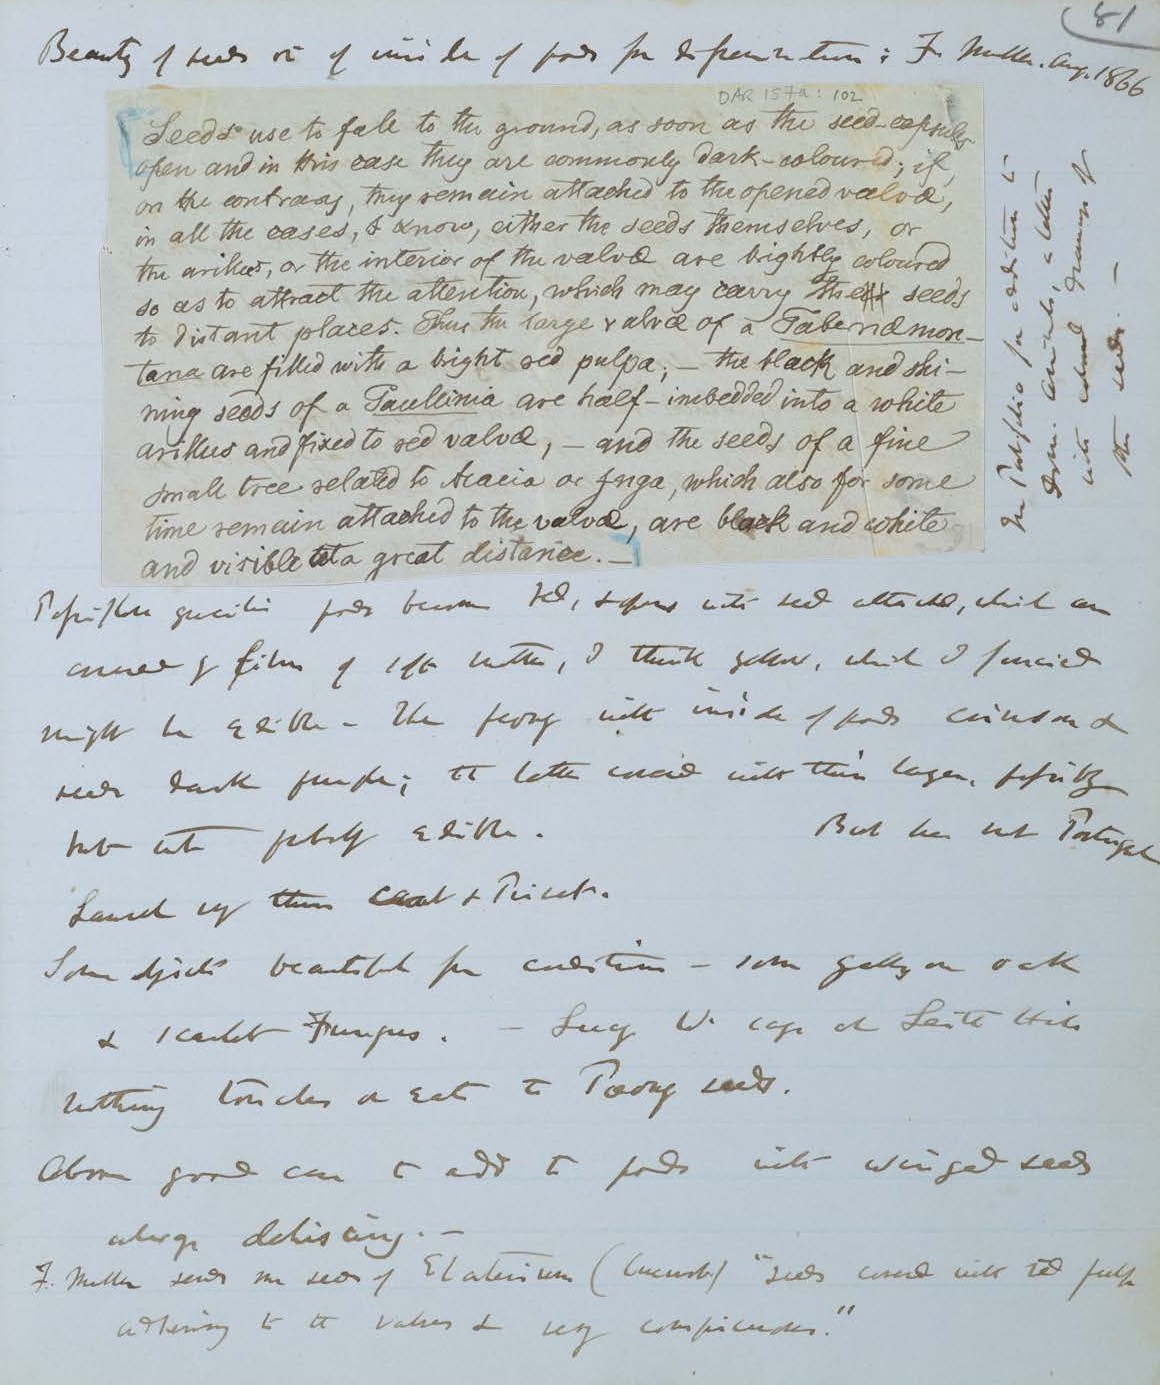 (81
Beauty of seeds or of inside of pods for dissemination: F. Müller. Aug. 1866
DAR 157a: 102
Seeds use to fall to the ground, as soon as the seed-capsules
open and in this case they are commonly dark-coloured; if,
on the contrary, they remain attached to the opened valvæ,
in all the cases, I know, either the seeds themselves, or
the arillus, or the interior of the valvæ are brightly coloured
so as to attract the attention, which may carry the seeds
to distant places. Thus the large valvæ of a Tabernæmon-
tana are filled with a bright red pulpa; – the black and shi-
ning seeds of a Paullinia are half-imbedded into a white
arillus and fixed to red valvæ, – and the seeds of a fine
small tree related to Acacia or Inga, which also for some
time remain attached to the valvæ, are black and white
and visible at a great distance. –
In Portfolio for
Down. a letter
with coloured drawings of
the seeds. –
pods become red, & opens with seed attached, which are
covered by film of soft matter, I think yellow, which I fancied
might be edible – The peony with inside of pods crimson &
seeds dark purple; the latter covered with thin layer,
but with edible. But has not Portugal
Laurel up thin coat & Privet.
Some objects beautiful for – some galls on oak
& scarlet Fungus. – Lucy W. says at Leith Hill
nothing touches or eats the Pæony seeds.
Above good case to add to pods with winged seeds
always dehiscing. –
F. Müller sends me seeds of Elaterium (Cucurb) "seeds covered with red pulp
adhering to the valves & very conspicuous."